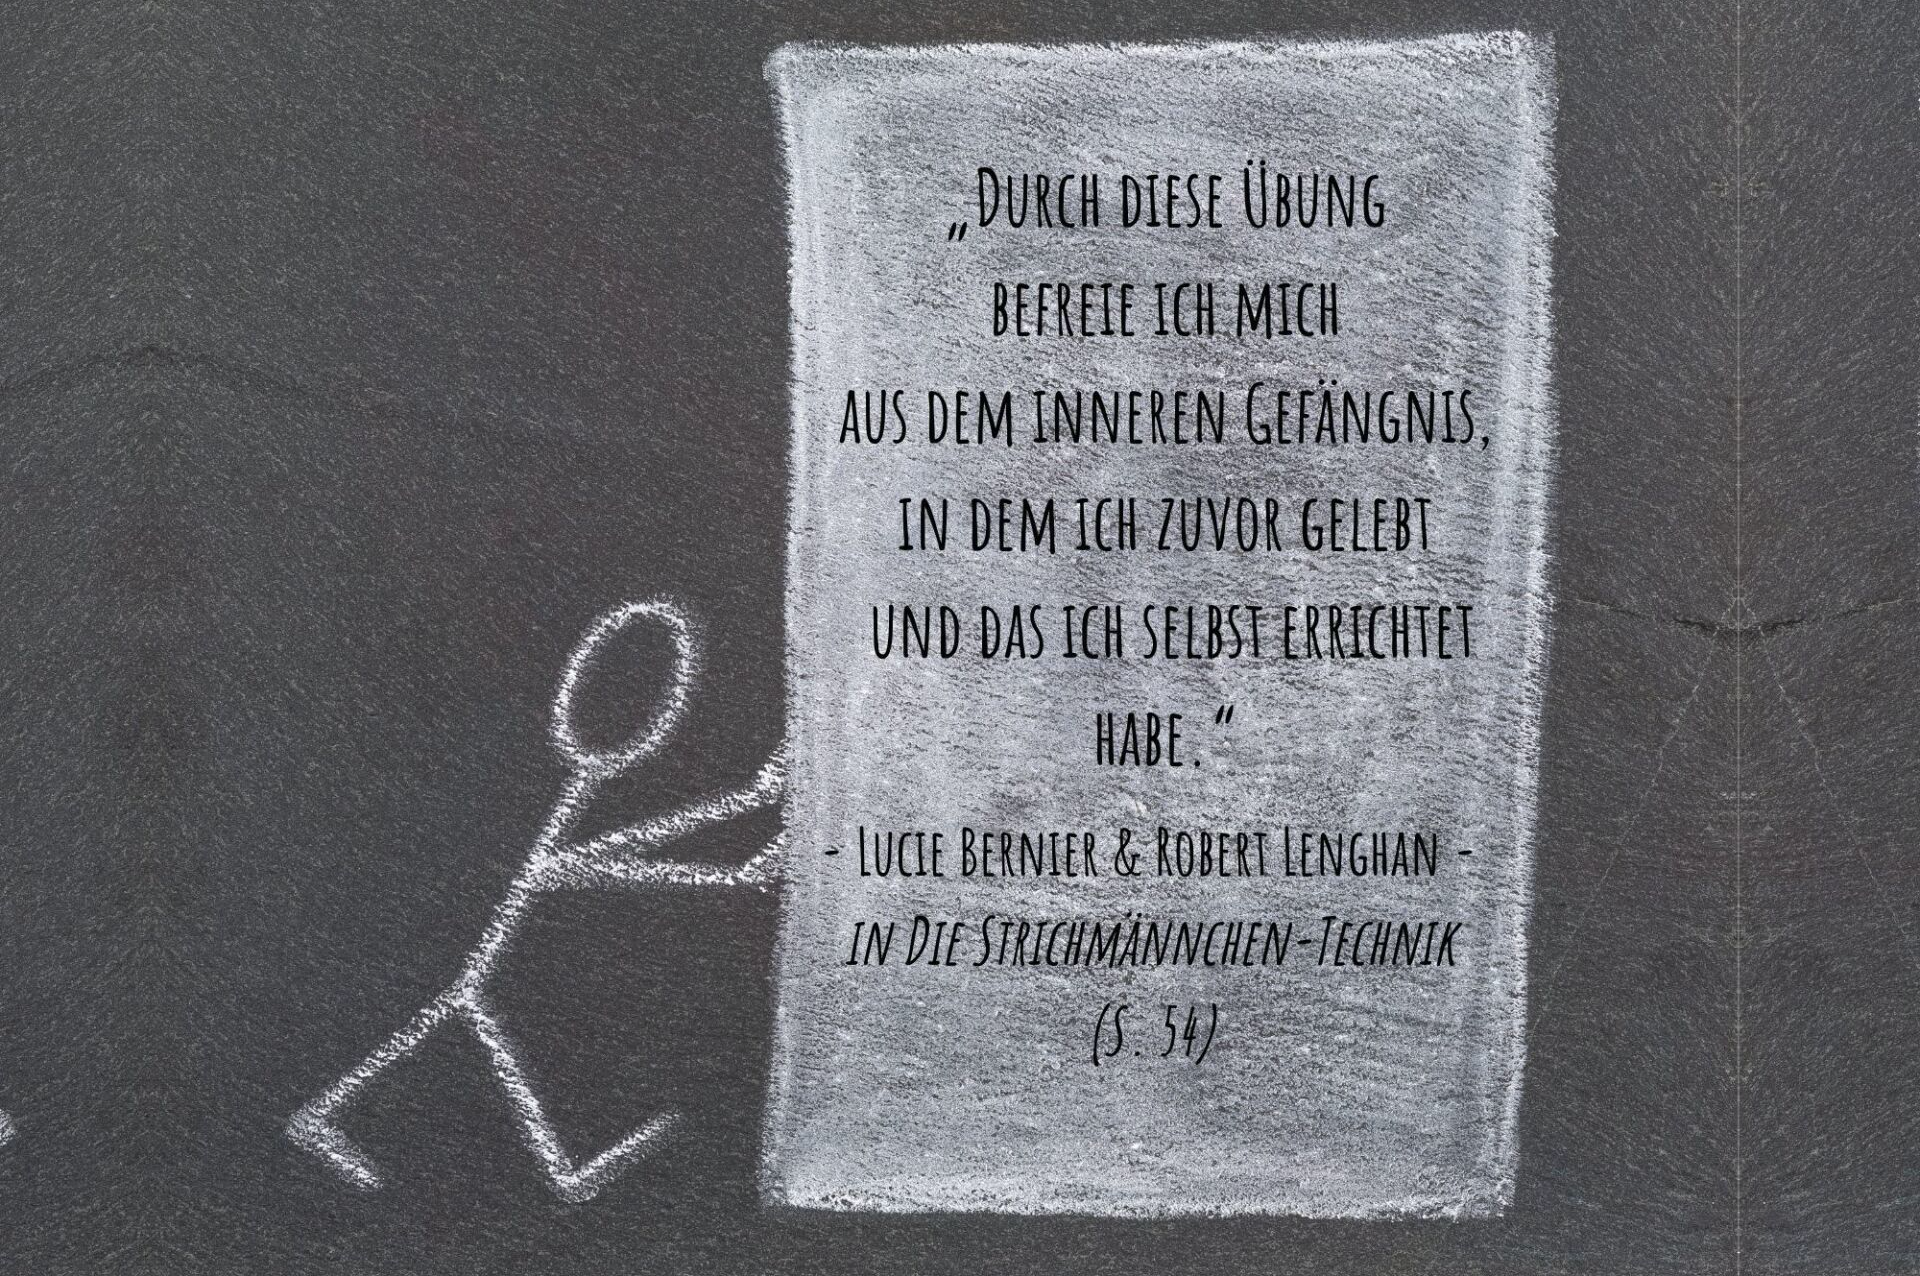 „Durch diese Übung
befreie ich mich
aus dem inneren Gefängnis,
in dem ich zuvor gelebt
und das ich selbst errichtet
habe.“
- Lucie Bernier & Robert Lenghan -
in Die Strichmännchen-Technik
(S. 54)